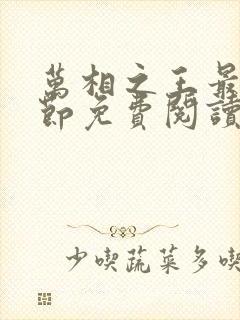 萬相之王最
節免費閱讀
少喫蔬菜多喫